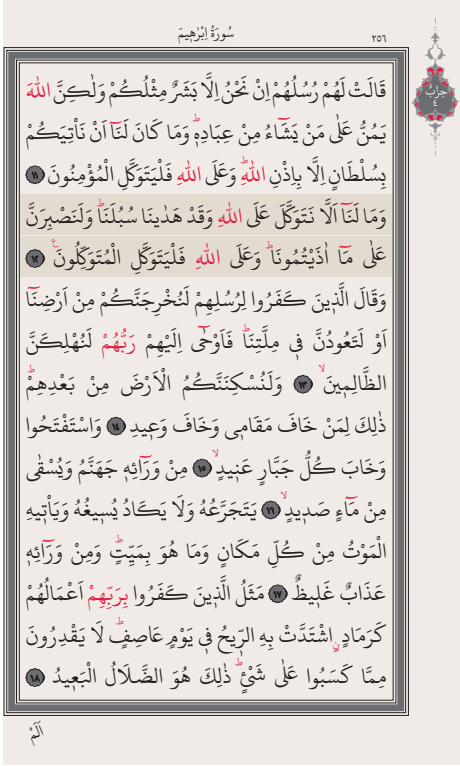 سُورَةُ اِبْرٰه۪يمَ
٢٥٦
حِزْبُ
٤
قَالَتْ لَهُمْ رُسُلُهُمْ اِنْ نَحْنُ اِلَّا بَشَرٌ مِثْلُكُمْ وَلٰكِنَّ اللّٰهَ
يَمُنُّ عَلٰى مَنْ يَشَٓاءُ مِنْ عِبَادِه۪ۜ وَمَا كَانَ لَنَٓا اَنْ نَأْتِيَكُمْ
بِسُلْطَانٍ اِلَّا بِاِذْنِ اللّٰهِۜ وَعَلَى اللّٰهِ فَلْيَتَوَكَّلِ الْمُؤْمِنُونَ ﴿١١﴾
وَمَا لَنَٓا اَلَّا نَتَوَكَّلَ عَلَى اللّٰهِ وَقَدْ هَدٰينَا سُبُلَنَاۜ وَلَنَصْبِرَنَّ
عَلٰى مَٓا اٰذَيْتُمُونَاۜ وَعَلَى اللّٰهِ فَلْيَتَوَكَّلِ الْمُتَوَكِّلُونَ۟ ﴿١٢﴾
وَقَالَ الَّذ۪ينَ كَفَرُوا لِرُسُلِهِمْ لَنُخْرِجَنَّكُمْ مِنْ اَرْضِنَٓا
اَوْ لَتَعُودُنَّ ف۪ي مِلَّتِنَاۜ فَاَوْحٰٓى اِلَيْهِمْ رَبُّهُمْ لَنُهْلِكَنَّ
الظَّالِم۪ينَۙ ﴿١٣﴾ وَلَنُسْكِنَنَّكُمُ الْاَرْضَ مِنْ بَعْدِهِمْۜ
ذٰلِكَ لِمَنْ خَافَ مَقَام۪ي وَخَافَ وَع۪يدِ ﴿١٤﴾ وَاسْتَفْتَحُوا
وَخَابَ كُلُّ جَبَّارٍ عَن۪يدٍۙ ﴿١٥﴾ مِنْ وَرَٓائِه۪ جَهَنَّمُ وَيُسْقٰى
مِنْ مَٓاءٍ صَد۪يدٍۙ ﴿١٦﴾ يَتَجَرَّعُهُ وَلَا يَكَادُ يُس۪يغُهُ وَيَأْت۪يهِ
الْمَوْتُ مِنْ كُلِّ مَكَانٍ وَمَا هُوَ بِمَيِّتٍۜ وَمِنْ وَرَٓائِه۪
عَذَابٌ غَل۪يظٌ ﴿١٧﴾ مَثَلُ الَّذ۪ينَ كَفَرُوا بِرَبِّهِمْ اَعْمَالُهُمْ
كَرَمَادٍۨ اشْتَدَّتْ بِهِ الرّ۪يحُ ف۪ي يَوْمٍ عَاصِفٍۜ لَا يَقْدِرُونَ
مِمَّا كَسَبُوا عَلٰى شَيْءٍۜ ذٰلِكَ هُوَ الضَّلَالُ الْبَع۪يدُ ﴿١٨﴾
اَلَمْ